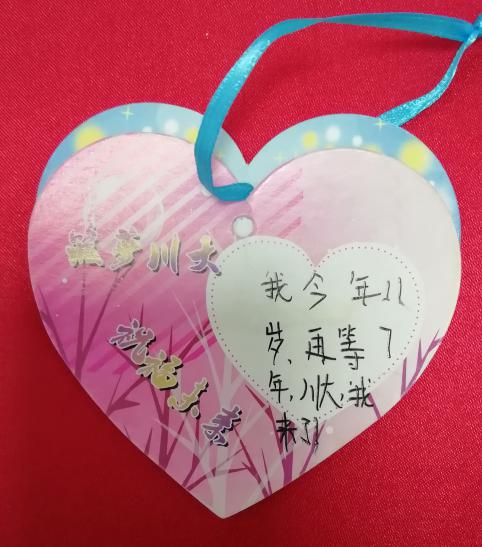 筑梦川大
祝福未来
我今年11
岁、再等7
年,川大,我
来了!